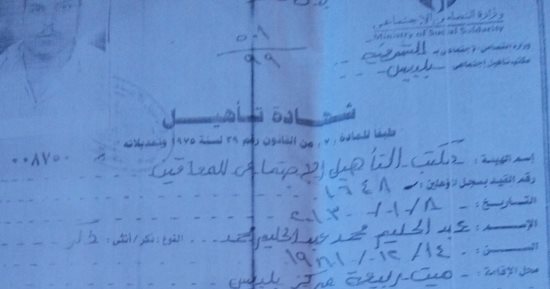 وزارة التضامن الإجتماعي
Ministry of Social Solidarity
مديرية التضامن الإجتماعي بـ الشرقية
مكتب تأهيل إجتماعي بلبيس
٥٠١
٩٩
شهادة تأهيل
طبقا للمادة ٧ من القانون رقم ٣٩ لسنة ١٩٧٥ وتعديلاته
٠٠٨٧٥٠
إسم الهيئة: مكتب التأهيل الإجتماعي للمعاقين
رقم القيد بسجل المؤهلين: ١٦٤٨
التاريخ: ٢٠١٣/١/٨
الإسم: عبد الحليم محمد عبد الحليم محمد النوع: ذكر/أنثى: ذكر
السن: ١٩٨١/١٢/١٤
محل الإقامة: ميت ربيعة مركز بلبيس